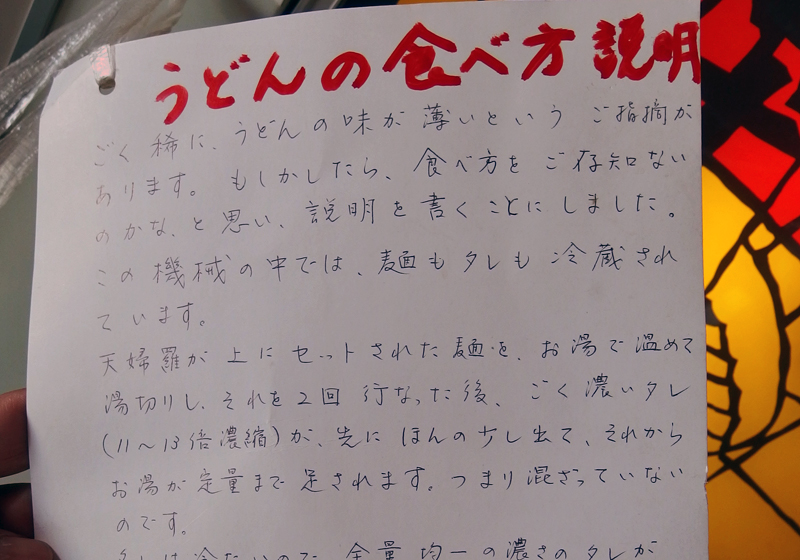 うどんの食べ方説明
ごく稀に、うどんの味が薄いという ご指摘が
あります。もしかしたら、食べ方をご存知ない
のかな、と思い、説明を書くことにしました。
この機械の中では、麺もタレも冷蔵され
ています。
天婦羅が上にセットされた麺を、お湯で温めて
湯切りし、それを2回行なった後、ごく濃いタレ
(11〜13倍濃縮)が、先にほんの少し出て、それから
お湯が定量まで足されます。つまり混ざっていない
のです。
は冷たいので、全量均一の濃さのタレが